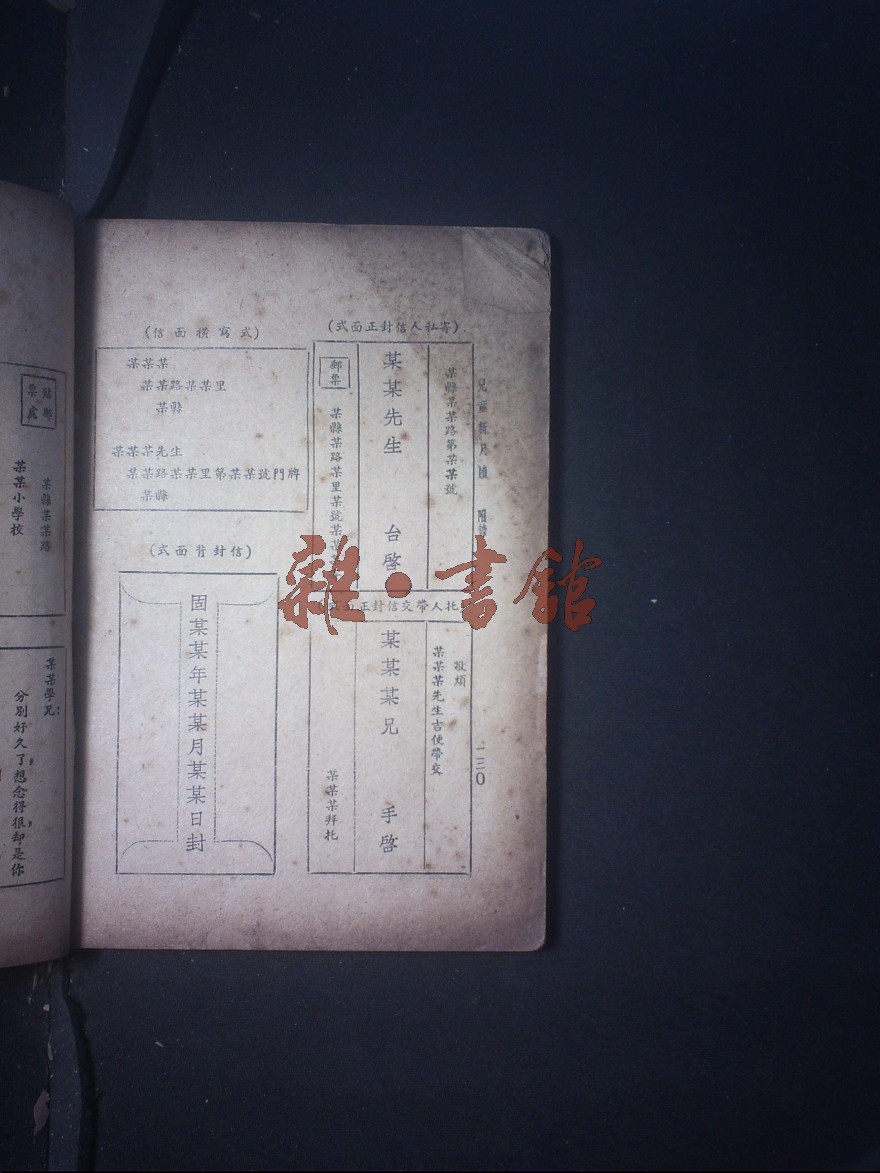 兒童新尺牘
一三〇
(寄私人信封正面式)
某縣某某路第某某號
某某先生 台啓
郵票
某縣某路某里某號某
託人帶交信封正面式
敬煩
某某某先生吉便帶交
某某某兄 手啓
某某某拜托
(式寫橫面信)
某某某
某某路某某里
某縣
某某某先生
某某路某某里第某某號門牌
某縣
(信封背面式)
固某某年某某月某某日封
貼郵票處
某縣某某路
某某小學校
某某學兄:
分別好久了,想念得很,却是你
雜·書館